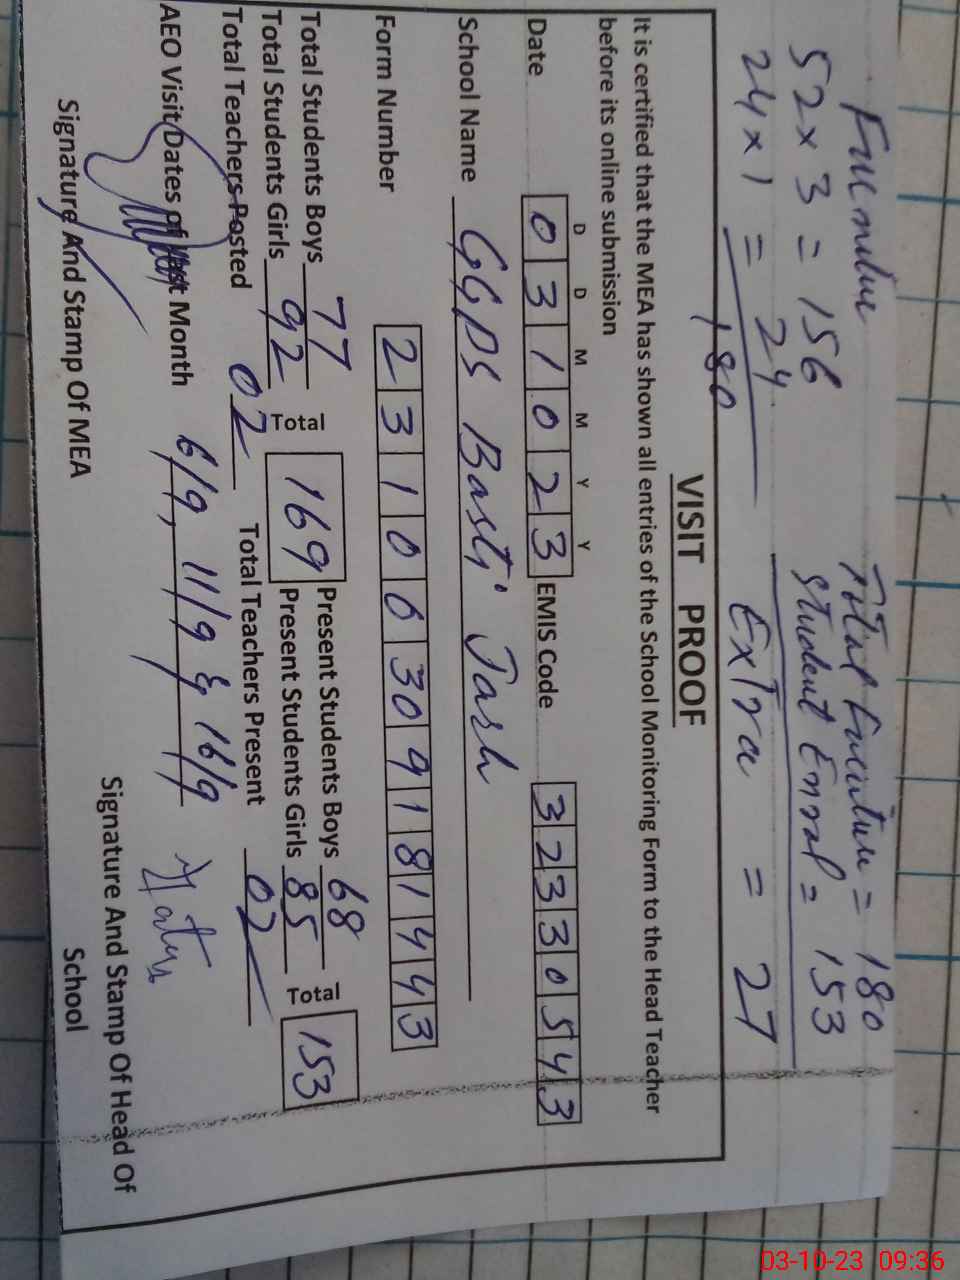 Furniture
52 x 3 = 156
24 x 1 = 24
180
Total Furniture = 180
Student Enrol = 153
Extra = 27
VISIT PROOF
It is certified that the MEA has shown all entries of the School Monitoring Form to the Head Teacher
before its online submission
D D M M Y Y
Date 03 10 23 EMIS Code 32330543
School Name GGPS Basti Jash
Form Number 2310630918143
Total Students Boys 77 Total 169 Present Students Boys 68 Total 153
Total Students Girls 92 Present Students Girls 85
Total Teachers Posted 02 Total Teachers Present 02
AEO Visit Dates of last Month 6/9, 11/9 & 16/9
Signature And Stamp Of MEA
Signature And Stamp Of Head Of
School
03-10-23 09:36